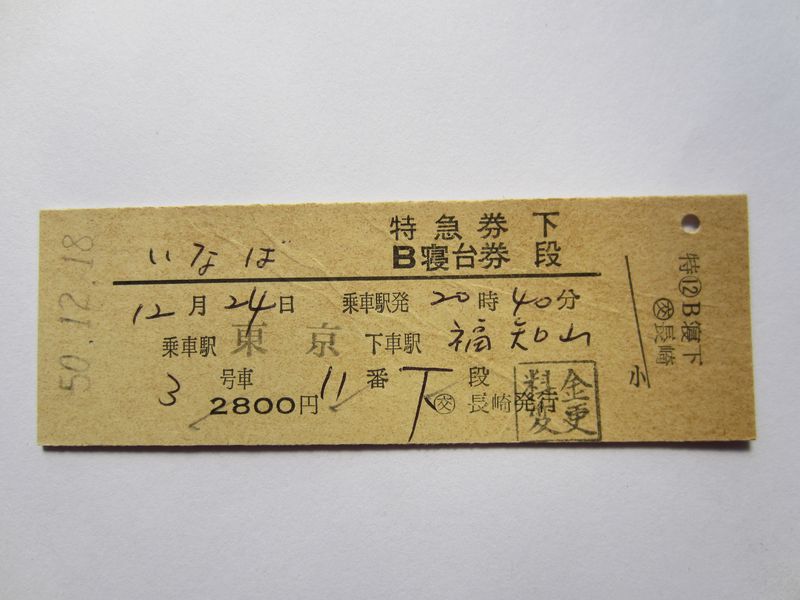 50.12.18
いなば
特急券 下
B寝台券 段
12月24日 乗車駅発 20時40分
乗車駅 東京 下車駅 福知山
3号車 11番 下段
2800円 ㊋長崎発行
料金
変更
特⑫B寝下
長崎
小